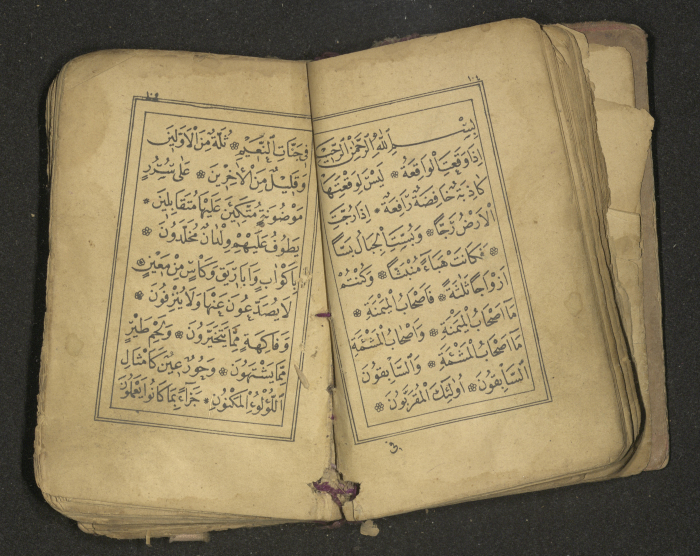 ١٠٤
بِسْمِ اللّٰهِ الرَّحْمٰنِ الرَّحِيمِ
اِذَا وَقَعَتِ الْوَاقِعَةُ ۞ لَيْسَ لِوَقْعَتِهَا
كَاذِبَةٌ خَافِضَةٌ رَافِعَةٌ ۞ اِذَا رُجَّتِ
الْاَرْضُ رَجًّا ۞ وَبُسَّتِ الْجِبَالُ بَسًّا
۞ فَكَانَتْ هَبَاءً مُنْبَثًّا ۞ وَكُنْتُمْ
اَزْوَاجًا ثَلٰثَةً ۞ فَاَصْحَابُ الْمَيْمَنَةِ ۞
مَا اَصْحَابُ الْمَيْمَنَةِ ۞ وَاَصْحَابُ الْمَشْئَمَةِ
مَا اَصْحَابُ الْمَشْئَمَةِ ۞ وَالسَّابِقُونَ
السَّابِقُونَ ۞ اُولٰئِكَ الْمُقَرَّبُونَ ۞
فى
فِى جَنَّاتِ النَّعِيمِ ۞ ثُلَّةٌ مِنَ الْاَوَّلِينَ
وَقَلِيلٌ مِنَ الْاٰخِرِينَ ۞ عَلٰى سُرُرٍ
مَوْضُونَةٍ مُتَّكِئِينَ عَلَيْهَا مُتَقَابِلِينَ ۞
يَطُوفُ عَلَيْهِمْ وِلْدَانٌ مُخَلَّدُونَ ۞
بِاَكْوَابٍ وَاَبَارِيقَ وَكَاْسٍ مِنْ مَعِينٍ ۞
لَا يُصَدَّعُونَ عَنْهَا وَلَا يُنْزِفُونَ ۞
وَفَاكِهَةٍ مِمَّا يَتَخَيَّرُونَ ۞ وَلَحْمِ طَيْرٍ
مِمَّا يَشْتَهُونَ ۞ وَحُورٌ عِينٌ كَاَمْثَالِ
اللُّؤْلُؤِ الْمَكْنُونِ ۞ جَزَاءً بِمَا كَانُوا يَعْمَلُونَ